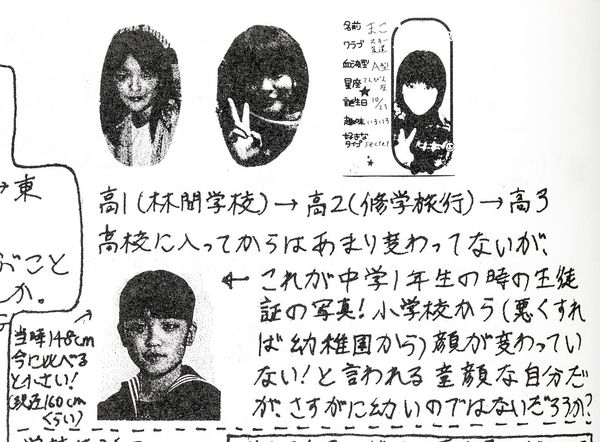 名前 まこ
クラブ スキー
血液型 A型
星座 てんびん
座
誕生日 10/21
趣味 いろいろ
好きな
タイプ secret
→東
おこと
か。
高1(林間学校)→高2(修学旅行)→高3
高校に入ってからはあまり変わってないが、
←これが中学1年生の時の生徒
証の写真!小学校から(悪くすれ
ば幼稚園から)顔が変わってい
ない!と言われる童顔な自分だ
が、さすがに幼いのではないだろうか?
当時148cm
今に比べる
と小さい!
(現在160cm
くらい)